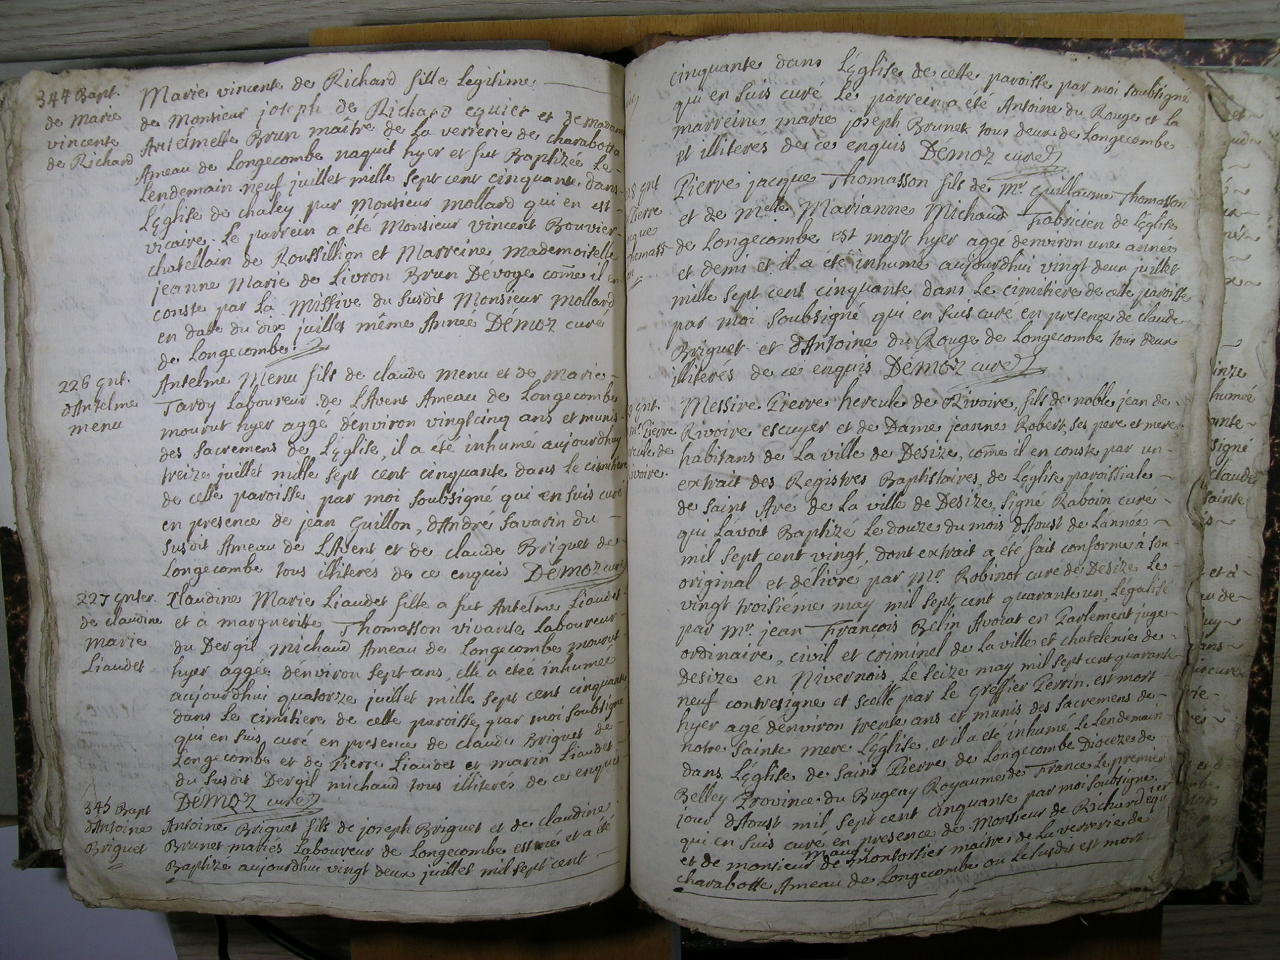 344 Bapt.
de Marie
vincente
de Richard
Marie vincente de Richard fille legitime
de Monsieur joseph de Richard equier et de Madame
Antelmette Brun maître de la verrerie de charabotte
Ameau de Longecombe naquit hyer et fut Baptizée le
lendemain neuf juillet mille sept cent cinquante dans
l'Eglise de chaley par Monsieur Mollard qui en est
vicaire. le parrein a été Monsieur vincent Bouvier
chatellain de Roussillion et Marreine, mademoiselle
jeanne Marie de Livron Brun Devoge come il en
conste par la Missive du susdit Monsieur Mollard
en datte du dix juillet même Année Démoz curé
de Longecombe.
226 Ent.
d'Antelme
menu
Antelme Menu fils de claude menu et de Marie
Tardy Laboureur de L'Avent Ameau de Longecombe
mourut hyer aggé d'environ vingtcinq ans et munis
des sacremens de l'Eglise, il a été inhumé aujourd'huy
treize juillet mille sept cent cinquante dans le cimitiere
de cette paroisse par moi soubsigné qui en suis curé
en presence de jean Guillon, d'André Savarin du
susdit Ameau de L'Avent et de claude Briguet de
Longecombe tous illiteres de ce enquis Démoz curé
227 Enter.
de claudine
Marie
Liaudet
Claudine Marie Liaudet fille a fut Antelme Liaudet
et a marguerite Thomasson vivante Laboureur
du Dergil michaud Ameau de Longecombe mourut
hyer aggée d'environ sept ans, elle a étéé inhumée
aujourd'hui quatorze juillet mille sept cent cinquante
dans le cimitiere de cette paroisse, par moi soubsigné
qui en suis curé en presence de claude Briguet de
Longecombe et de Pierre Liaudet et marin Liaudet
du susdit Dergil michaud tous illiterés de ce enquis
Démoz curé
345 Bapt
d'Antoine
Briguet
Antoine Briguet fils de joseph Briguet et de claudine
Brunet mariés Laboureur de Longecombe est né et a été
Baptizé aujourd'hui vingt deux juillet mil sept cent
cinquante dans l'Eglise de cette paroisse par moi soubsigné
qui en suis curé le parrein a été Antoine du Rouge et la
marreine marie joseph Brunet tous deux de Longecombe
et illiteres de ce enquis Démoz curé
Pierre jacque Thomasson fils de Mr Guillaume Thomasson
et de Melle Marianne Michaud Fabricien de l'Eglise
de Longecombe est mort hyer aggé d'environ une année
et demi et il a été inhumé aujourd'hui vingt deux juillet
mille sept cent cinquante dans le cimetière de cette paroisse
par moi soubsigné qui en suis curé en presence de claude
Briguet et d'Antoine du Rouge de Longecombe tous deux
illiteres de ce enquis Démoz curé
Messire Pierre hercule de Rivoire, fils de noble jean de
Rivoire escuyer et de Dame jeanne Robert, ses pere et mere
habitans de la ville de Desize, come il en conste par un
extrait des Registres Baptistaires, de l'Eglise paroissiale
de Saint Aré de la ville de Desize, signé Rabain curé
qui l'avoit Baptizé le douze du mois d'Aoust de l'année
mil sept cent vingt dont extrait a été fait conforme à son
original et délivré par Mr Robinot curé de Desize le
vingt troisiéme may mil sept cent quarante un Légalisé
par Mr jean François Belin Avocat en Parlement juge
ordinaire, civil et criminel de la ville et chatelenie de
desize en Nivernois, le seize may mil sept cent quarante
neuf contresigné et scellé par le greffier Perrin. est mort
hyer agé d'environ trente ans et munis des sacremens de
notre Sainte mere l'Eglise, et il a été inhumé le lendemain
dans l'Eglise de Saint Pierre de Longecombe Diocéze de
Belley Province du Bugey Royaume de France le premier
jour d'Aoust mil sept cent cinquante par moi soubsigné
qui en suis curé en presence de Monsieur de Richard equier
et de monsieur de Montfortier maitres de la verrerie de
charabotte Ameau de Longecombe ou le susdit est mort